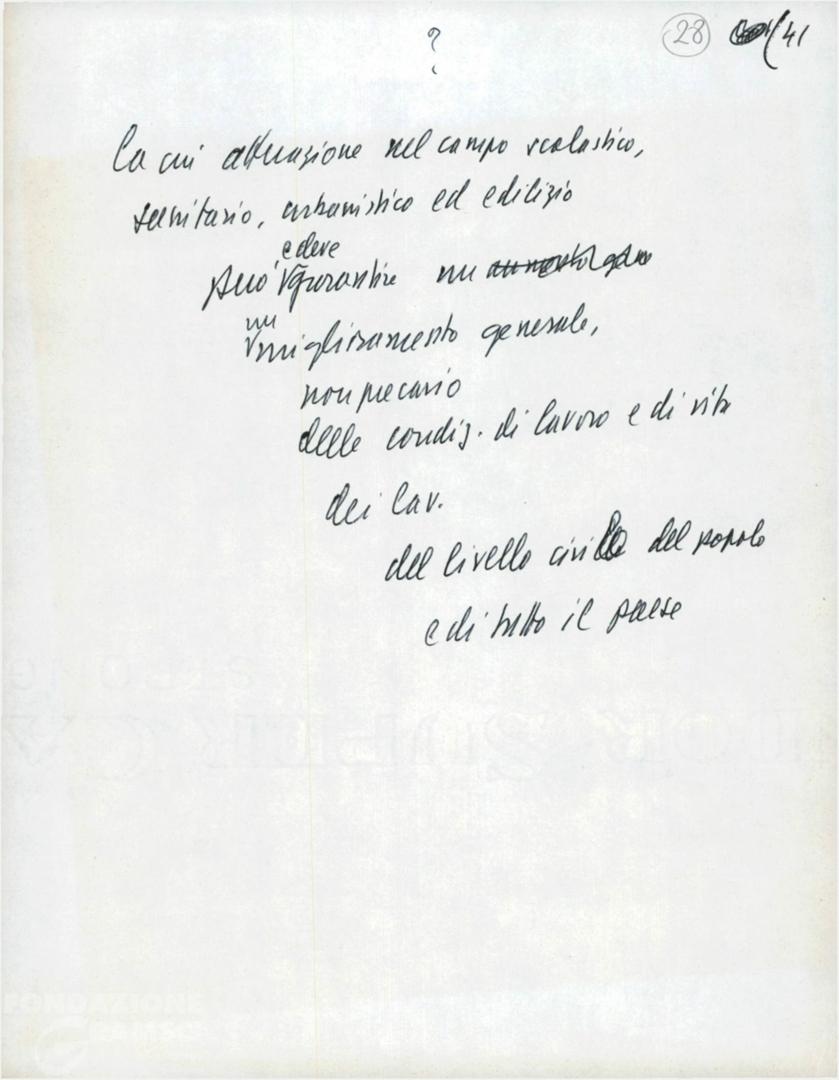 ?
28 41
la cui attuazione nel campo scolastico,
sanitario, urbanistico ed edilizio
e deve
può garantire un aumento gene
un
miglioramento generale,
non precario
delle condiz. di lavoro e di vita
dei lav.
del livello civile del popolo
e di tutto il paese
FONDAZIONE